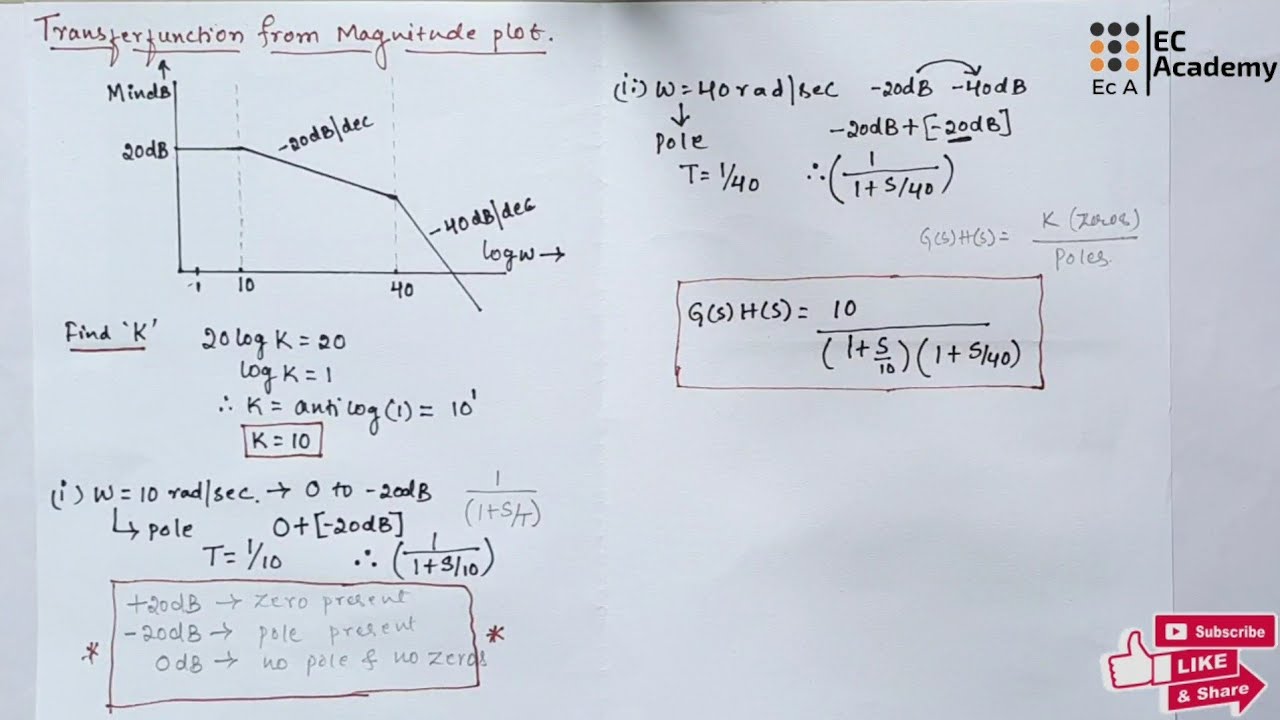 Transferfunction from Magnitude plot.
M in dB
20dB
-20dB/dec
-40dB/dec
log w →
-1
10
40
Find 'K'
20 log K = 20
log K = 1
∴ K = antilog(1) = 10¹
K = 10
(i) W = 10 rad/sec. → 0 to -20dB
1/(1+S/T)
↳ pole 0+[-20dB]
T = 1/10 ∴ (1/(1+S/10))
+20dB → Zero present
-20dB → pole present
* 0dB → no pole & no zeros *
(ii) W = 40 rad/sec -20dB -40dB
↓
pole -20dB+[-20dB]
T = 1/40 ∴ (1/(1+S/40))
G(S)H(S) = K (Zeros)/Poles.
G(S)H(S) = 10/((1+S/10)(1+S/40))
EC
Academy
Ec A
Subscribe
LIKE
& Share